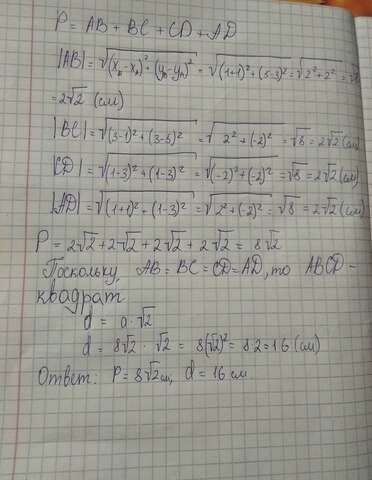 P = AB + BC + CD + AD
|AB| = √(x_B - x_A)² + (y_B - y_A)² = √(1+1)² + (5-3)² = √2² + 2² = √8
= 2√2 (см)
|BC| = √(3-1)² + (3-5)² = √2² + (-2)² = √8 = 2√2 (см)
|CD| = √(1-3)² + (1-3)² = √(-2)² + (-2)² = √8 = 2√2 (см)
|AD| = √(1+1)² + (1-3)² = √2² + (-2)² = √8 = 2√2 (см)
P = 2√2 + 2√2 + 2√2 + 2√2 = 8√2
Поскольку, AB = BC = CD = AD, то ABCD -
квадрат
d = a·√2
d = 8√2 · √2 = 8(√2)² = 8·2 = 16 (см)
Ответ: P = 8√2 см, d = 16 см.